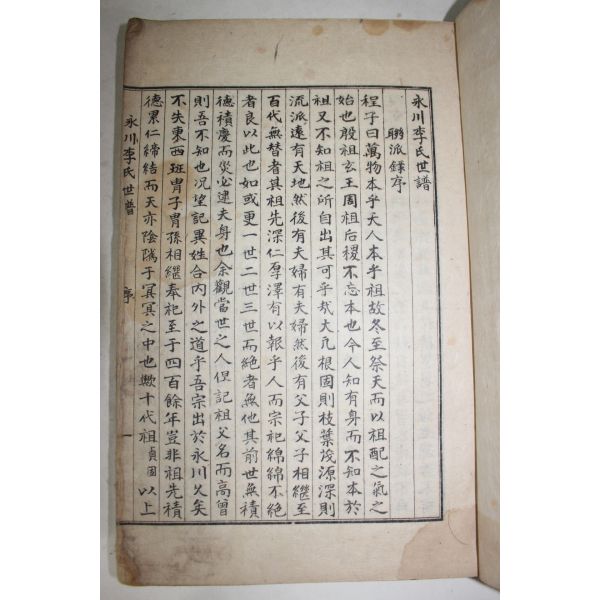 永川李氏世譜
聯派錄序
程子曰萬物本乎天人本乎祖故冬至祭天而以祖配之氣之
始也殷祖玄王周祖后稷不忘本也今人知有身而不知本於
祖又不知祖之所自出其可乎哉大凡根固則枝葉茂源深則
流派遠有天地然後有夫婦有夫婦然後有父子父子相繼至
百代無替者其祖先深仁厚澤有以報乎人而宗祀綿綿不絶
者良以此也如或更一世二世三世而絶者無他其前世無積
德積慶而災必逮夫身也余觀當世之人但記祖父名而高曾
則吾不知也况望記異姓合內外之道乎吾宗出於永川久矣
不失東西班胄子胄孫相繼奉祀至于四百餘年豈非祖先積
德累仁締結而天亦陰隲于冥冥之中也歟十代祖禎國以上
永川李氏世普 序 一